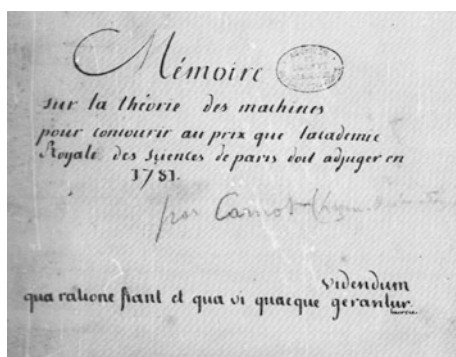 Mémoire
sur la théorie des machines
pour concourir au prix que lacademie
Royale des sciences de paris doit adjuger en
1781.
par Carnot
videndum
qua ratione fiant et qua vi quaeque gerantur.